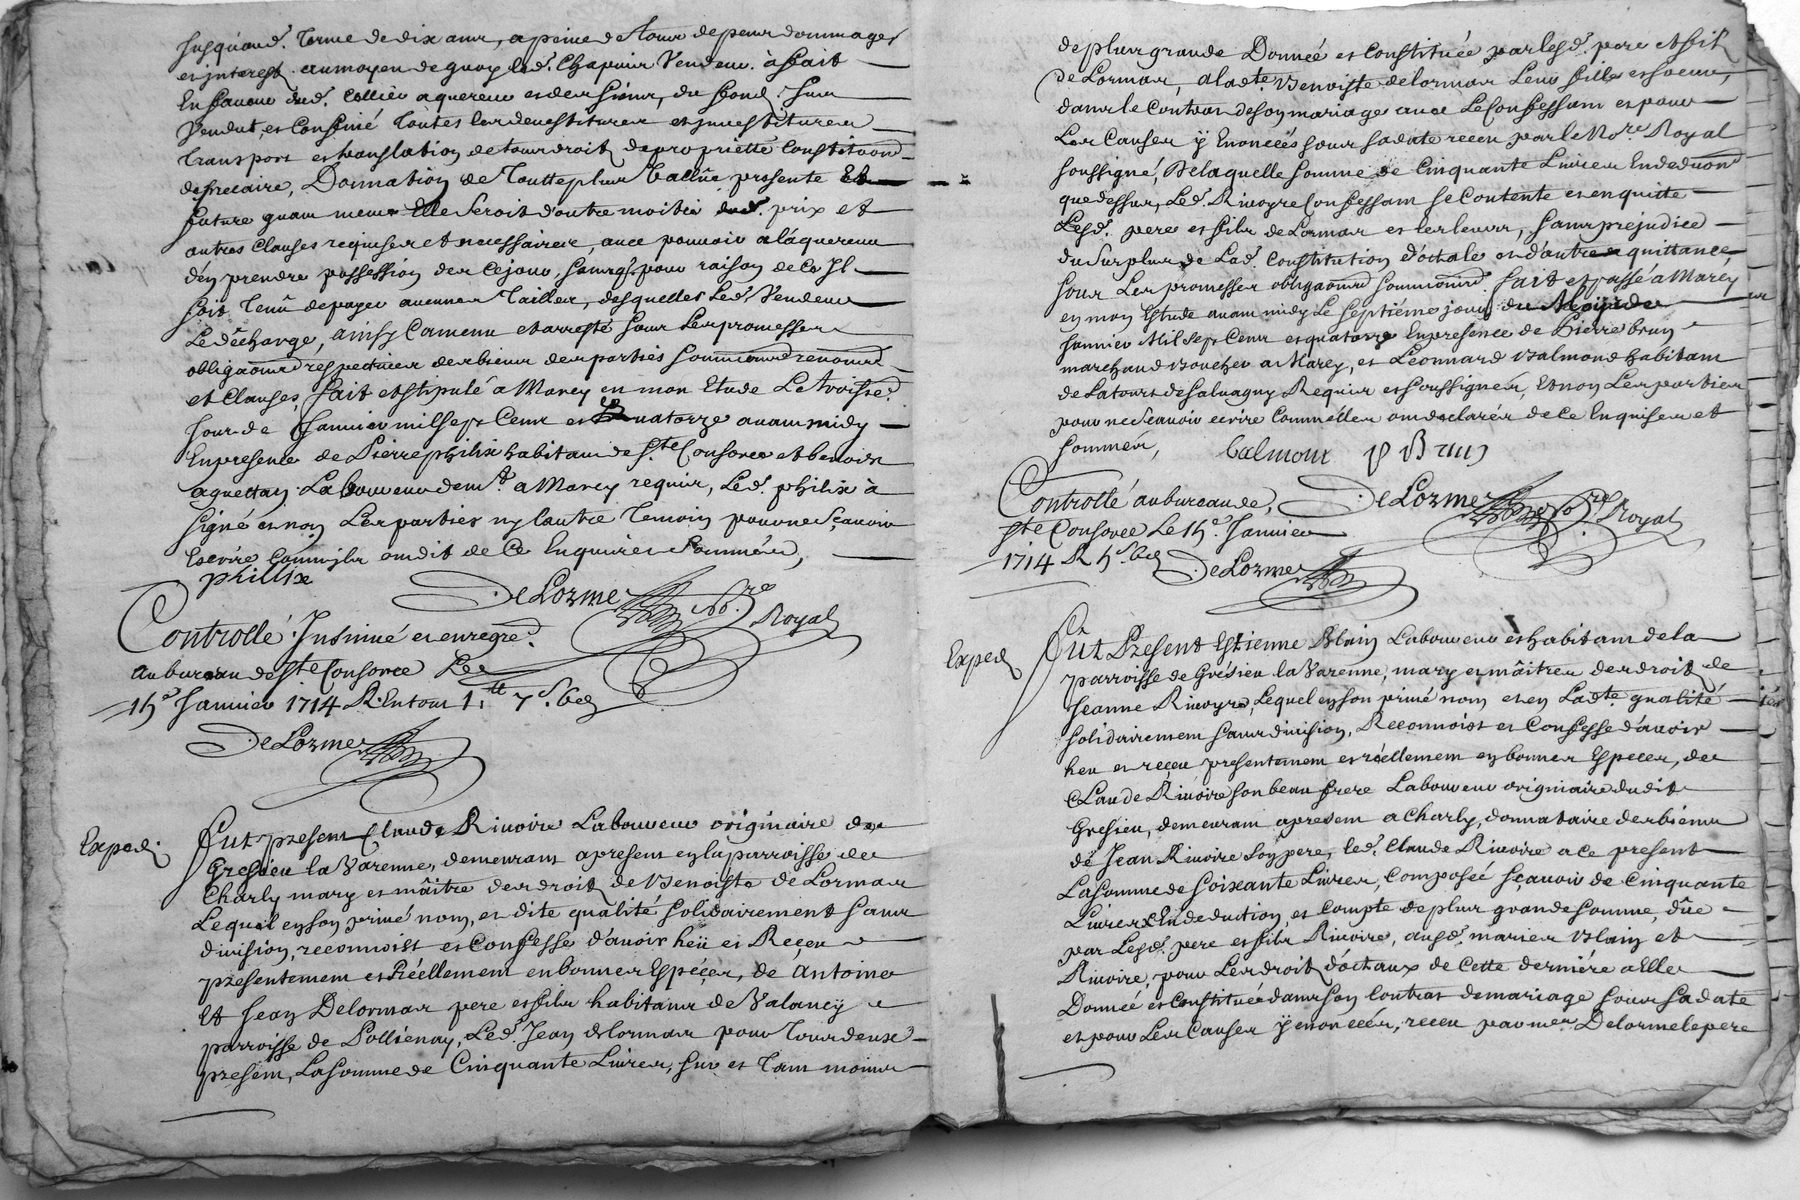 jusquaud. terme de dix ans, a peine de tous depens dommages
et interest. au moyen de quoy led. Chapuis Vendeur. à fait
En faveur dud. Collier aquereur et des siens, du fond. sus
Vendut, et Confiné toutes les devestitures et jnvestitures
transport et translation de tous droits de proprietté Constitaon
de precaire, Donnation de toutte plus Vallüe presente Et
future quan mem Elle seroit d'outre moitié dud. prix et
autres clauses requises et necessaires, avec pouvoir a láquereur
dén prendre possession des ce jour, sans q. pour raison de ce Jl
soit tenû de payer aucunes tailles, desquelles Led. Vendeur
Le décharge, ainsy Convenu et arresté sous Les promesses
obligaons respectives des biens des parties soumissions renonons
et Clauses, fait et stipulé a Marcy en mon Etude Le troisie.
jour de Janvier mil sept Cens et Quatorze avant midy
En presence de Pierre philix habitan de Ste Consorce et benoist
aquettan Laboureur demt. a Marcy requis, Led. philix à
signé et non Les parties ny lautre temoin pour ne sçavoir
Escrire Comm'jls ont dit de Ce Enquis et sommés,
phillix
DeLorme Nore Royal
Controllé Jnsinué et enregré.
au bureau de Ste Consorce Le
15e Janvier 1714 R. En tout 1.tt 7s. 6d
DeLorme
Exped.
Fut present Claude Rivoire Laboureur originaire de
Gresieu la Varenne, demeurant apresent en la parroisse de
Charly mary et mâitre des droits de Benoiste de Lormas
Lequel en son privé nom, et dite qualité solidairement sans
division, reconnoist et Confesse d'avoir heü et Reçeu
presentement et Réellement en bonnes Espéçes, de Antoine
Et Jean Delormas pere et fils habitans de Valancÿ
parroisse de Pollienay, Led. Jean delormas pour tous deux
present, La somme de Cinquante Livres, sur et tant moins
de plus grande Donnée et Constituée par lesd. pere et fils
de Lormas, a ladte. Benoiste delormas Leur fille et soeur,
dans le Contrat de son mariage avec Le Confessant et pour
Les Causes ÿ Enoncées sous sa date receu par le Nore Royal
soussigné, De laquelle somme de Cinquante Livres En deduon
que dessus, Led. Rivoyre Confessant se Contente et en quitte
Lesd. pere et fils de Lormas et les leurs, sans prejudice
du surplus de Lad. Constitution d'octale et d'autre quittance
sous Les promesses obligaons soumissions. fait et passé a Marcy
en mon Estude avant midy Le septiéme jour du Moys de
Janvier Mil sept Cens et quatorze En presence de Pierre brun
marchand Boucher a Marcy, et Leonnard Valmond habitant
de Latour de salvagny Requis et soussignés, Et non Les parties
pour ne scavoir ecrire Comm'elles ont declarés de ce Enquises et
sommés,
Valmont P Brun
DeLorme Nore Royal
Controllé au bureau de,
Ste Consorce Le 15e. Janvier
1714 R 5s. 6d
DeLorme
Exped
Fût Present Estienne Blain Laboureur et habitant de la
parroisse de Grésieu la Varenne, mary et mâitre des droits de
Jeanne Rivoyre, Lequel en son privé nom et en Ladte. qualité
solidairement sans division, Reconnoist et Confesse d'avoir
heu et reçeu presentement et réellement en bonnes Especes, de
Claude Rivoire son beau frere Laboureur originaire dudit
Gresieu, demeurant apresent a Charly, donnataire des biens
de Jean Rivoire son pere, led. Claude Rivoire a ce present
La somme de soixante Livres, Composée sçavoir de Cinquante
Livres En deduction et Compte de plus grande somme, dûe
par Lesd. pere et fils Rivoire, ausd. mariés Blain et
Rivoire, pour Les droits d'octaux de Cette derniére a Elle
Donnée et Constituée dans son Contrat de mariage sous sa date
et pour Les Causes ÿ enoncées, receu par me. Delorme le pere